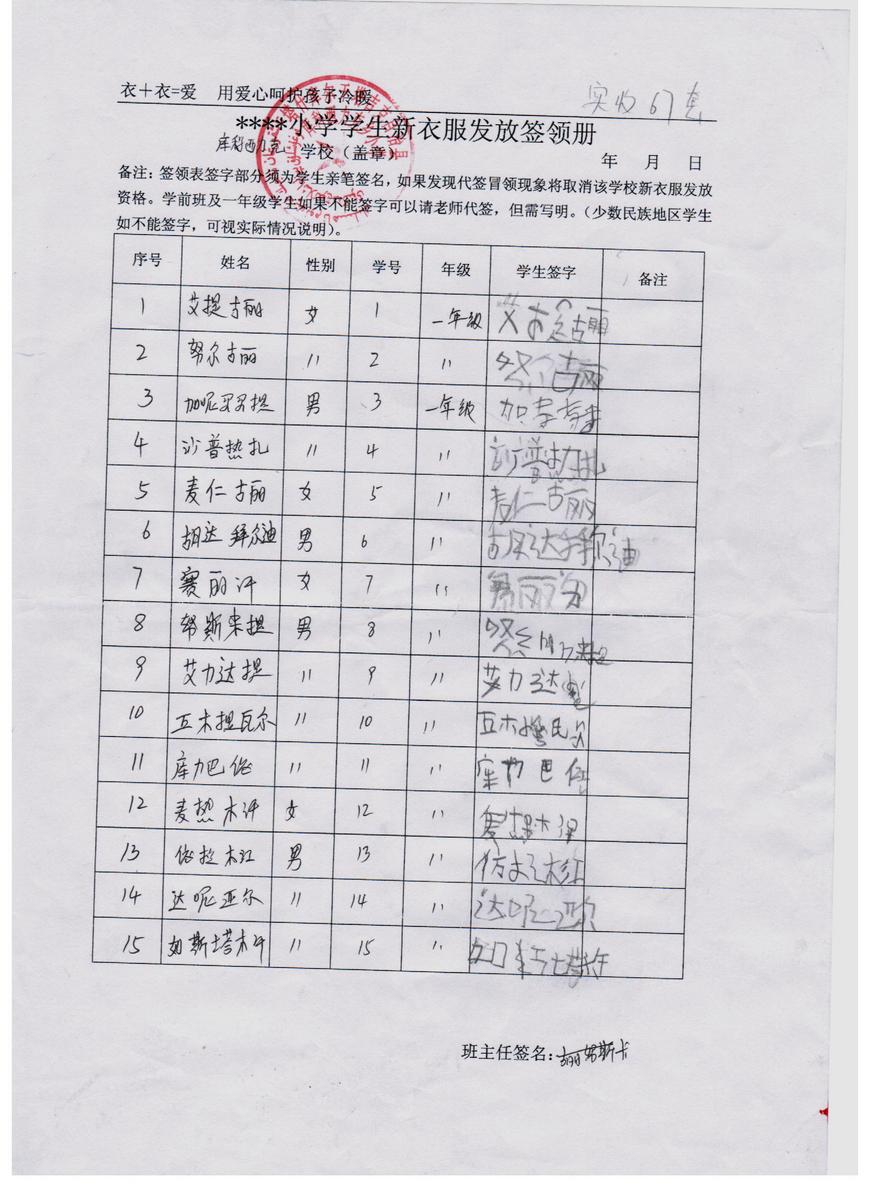 衣＋衣=爱　用爱心呵护孩子冷暖
实收67套
****小学学生新衣服发放签领册
学校（盖章）
年　月　日
备注：签领表签字部分须为学生亲笔签名，如果发现代签冒领现象将取消该学校新衣服发放
资格。学前班及一年级学生如果不能签字可以请老师代签，但需写明。（少数民族地区学生
如不能签字，可视实际情况说明）。
序号 姓名 性别 学号 年级 学生签字 备注
1 艾提古丽 女 1 一年级
2 努尔古丽 〃 2 〃
3 加呢买买提 男 3 一年级
4 沙普热扎 〃 4 〃 沙普热扎
5 麦仁古丽 女 5 〃 麦仁古丽
6 胡达拜尔迪 男 6 〃
7 赛丽汗 女 7 〃
8 努斯来提 男 8 〃
9 艾力达提 〃 9 〃 艾力达
10 五木提瓦尔 〃 10 〃
11 库力巴依 〃 11 〃 库力巴依
12 麦热木汗 女 12 〃
13 依拉木江 男 13 〃
14 达呢亚尔 〃 14 〃 达呢亚尔
15 如斯塔木汗 〃 15 〃
班主任签名：